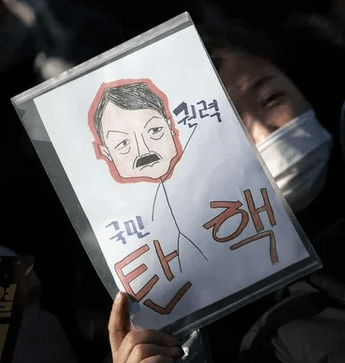 권력
국민
탄핵